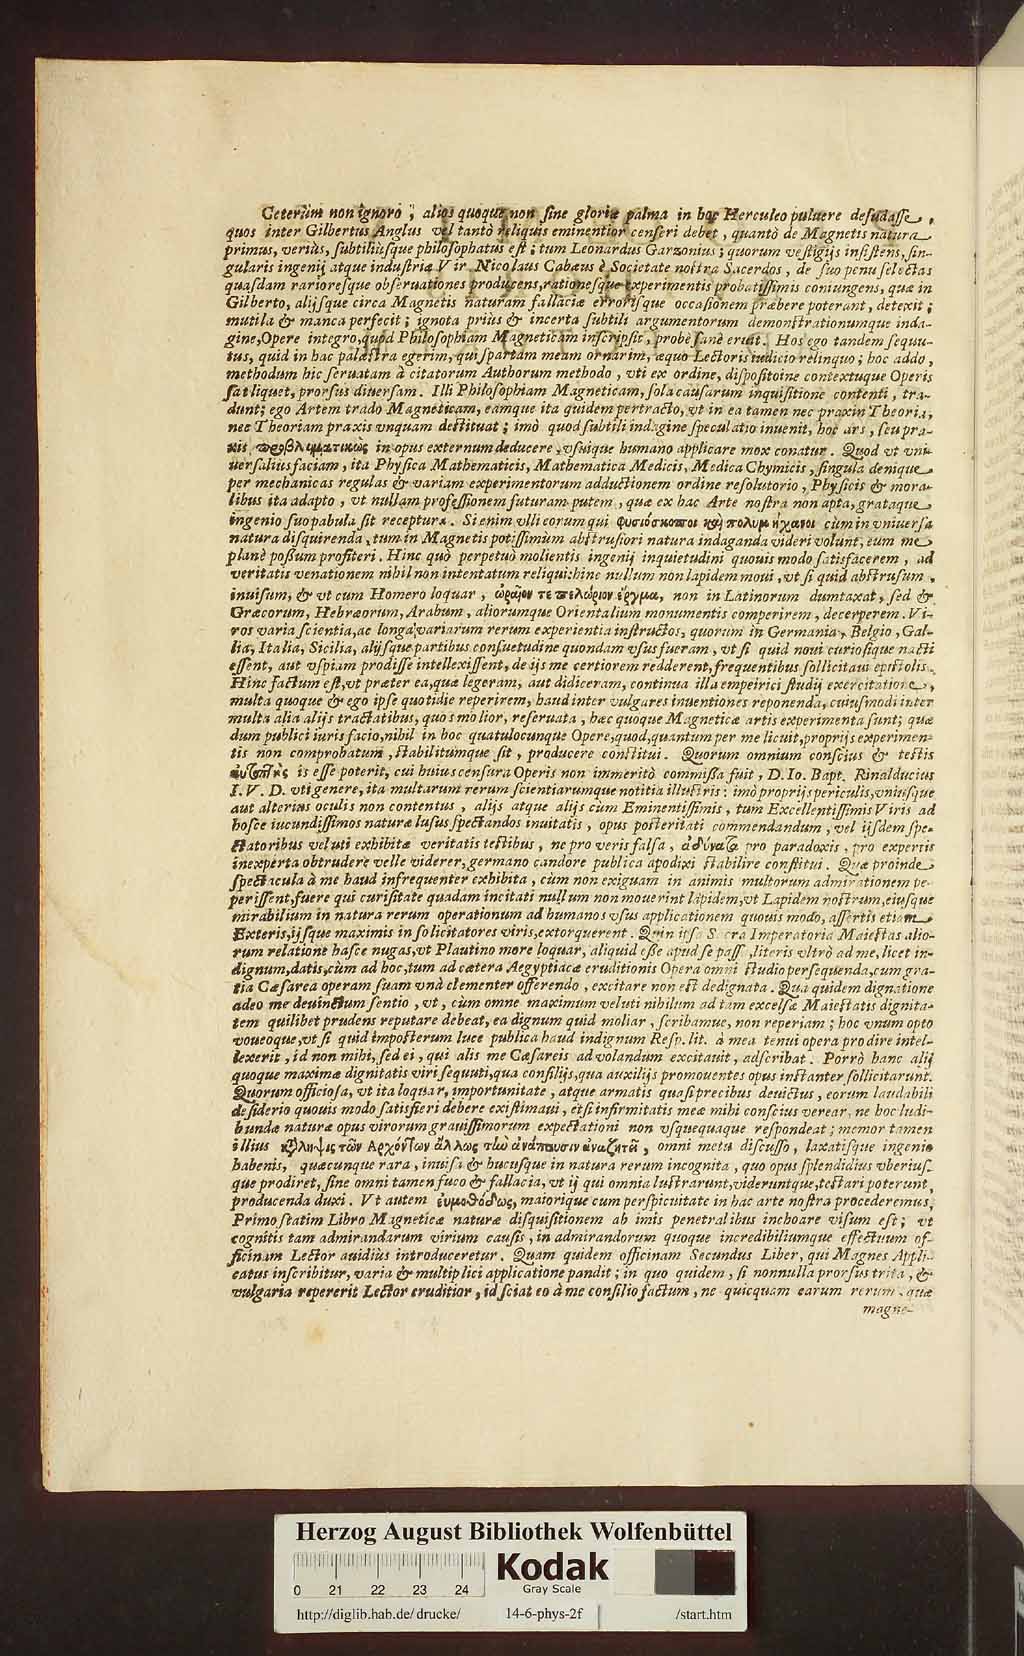 Ceterùm non ignoro ; alios quoque non ſine gloriæ palma in hoc Herculeo puluere deſudaſſe ,
quos inter Gilbertus Anglus vel tantò reliquis eminentior cenſeri debet , quantò de Magnetis natura
primus, veriùs, ſubtiliùſque philoſophatus eſt ; tum Leonardus Garzonius ; quorum veſtigijs inſiſtens, ſin-
gularis ingenij atque induſtriæ Vir Nicolaus Cabæus è Societate noſtra Sacerdos , de ſuo penu ſelectas
quaſdam rarioreſque obſeruationes producens, rationeſque experimentis probatiſſimis coniungens, quæ in
Gilberto, alijſque circa Magnetis naturam fallaciæ erroriſque occaſionem præbere poterant, detexit ;
mutila & manca perfecit ; ignota priùs & incerta ſubtili argumentorum demonſtrationumque inda-
gine, Opere integro, quod Philoſophiam Magneticam inſcripſit , probè ſanè eruit. Hos ego tandem ſequu-
tus, quid in hac palæſtra egerim, qui ſpartam meam ornârim, æquo Lectoris iudicio relinquo ; hoc addo ,
methodum hic ſeruatam à citatorum Authorum methodo , vti ex ordine, diſpoſitoine contextuque Operis
ſat liquet, prorſus diuerſam. Illi Philoſophiam Magneticam, ſola cauſarum inquiſitione contenti , tra-
dunt; ego Artem trado Magneticam, eamque ita quidem pertracto, vt in ea tamen nec praxin Theoria,
nec Theoriam praxis vnquam deſtituat ; imò quod ſubtili indagine ſpeculatio inuenit, hoc ars , ſeu pra-
xis προβληματικῶς in opus externum deducere , vſuique humano applicare mox conatur . Quod vt vni-
uerſalius faciam , ita Phyſica Mathematicis, Mathematica Medicis, Medica Chymicis , ſingula denique
per mechanicas regulas & variam experimentorum adductionem ordine reſolutorio , Phyſicis & mora-
libus ita adapto , vt nullam profeſſionem futuram putem , quæ ex hac Arte noſtra non apta, grataque
ingenio ſuo pabula ſit receptura . Si enim vlli eorum qui φυσιόσκοποι καὶ πολυμήχανοι cùm in vniuerſa
natura diſquirenda , tum in Magnetis potiſſimum abſtruſiori natura indaganda videri volunt, eum me
planè poßum profiteri . Hinc quò perpetuò molientis ingenij inquietudini quouis modo ſatisfacerem , ad
veritatis venationem nihil non intentatum reliqui: hinc nullum non lapidem moui , vt ſi quid abſtruſum ,
inuiſum, & vt cum Homero loquar , ὡραῖον τε πελώριον ἔργμα, non in Latinorum dumtaxat , ſed &
Græcorum, Hebræorum, Arabum , aliorumque Orientalium monumentis comperirem , decerperem . Vi-
ros varia ſcientia, ac longa variarum rerum experientia inſtructos, quorum in Germania , Belgio , Gal-
lia, Italia, Sicilia, alijſque partibus conſuetudine quondam vſus fueram , vt ſi quid noui curioſique nacti
eſſent, aut vſpiam prodiſſe intellexiſſent, de ijs me certiorem redderent, frequentibus ſollicitaui epiſtolis.
Hinc factum eſt, vt præter ea, quæ legeram, aut didiceram, continua illa empeirici ſtudij exercitatione ,
multa quoque & ego ipſe quotidie reperirem, haud inter vulgares inuentiones reponenda, cuiuſmodi inter
multa alia alijs tractatibus, quos molior, reſeruata , hæc quoque Magneticæ artis experimenta ſunt; quæ
dum publici iuris facio, nihil in hoc quatulocunque Opere, quod, quantum per me licuit, proprijs experimen-
tis non comprobatum , ſtabilitumque ſit , producere conſtitui . Quorum omnium conſcius & teſtis
αὐτόπτης is eſſe poterit, cui huius cenſura Operis non immeritò commiſſa fuit , D. Io. Bapt. Rinalducius
I. V. D. vti genere, ita multarum rerum ſcientiarumque notitia illuſtris : imò proprijs periculis, vniuſque
aut alterius oculis non contentus , alijs atque alijs cùm Eminentiſſimis , tum Excellentiſſimis Viris ad
hoſce iucundiſſimos naturæ luſus ſpectandos inuitatis , opus poſteritati commendandum , vel ijſdem ſpe-
ctatoribus veluti exhibitæ veritatis teſtibus , ne pro veris falſa , ἀδύνατα pro paradoxis , pro expertis
inexperta obtrudere velle viderer, germano candore publica apodixi ſtabilire conſtitui . Quæ proinde
ſpectacula à me haud infrequenter exhibita , cùm non exiguam in animis multorum admirationem pe-
periſſent, fuere qui curiſitate quadam incitati nullum non mouerint lapidem, vt Lapidem noſtrum, eiuſque
mirabilium in natura rerum operationum ad humanos vſus applicationem quouis modo , aſſertis etiam
Exteris, ijſque maximis in ſolicitatores viris, extorquerent . Quin ipſa Sacra Imperatoria Maieſtas alio-
rum relatione haſce nugas, vt Plautino more loquar, aliquid eſſe apud ſe paſſa , literis vltrò ad me, licet in-
dignum, datis, cùm ad hoc, tum ad cætera Aegyptiacæ eruditionis Opera omni ſtudio perſequenda, cum gra-
tia Cæſarea operam ſuam vnà clementer offerendo , excitare non eſt dedignata . Qua quidem dignatione
adeo me deuinctum ſentio , vt , cùm omne maximum veluti nihilum ad tam excelſæ Maieſtatis dignita-
tem quilibet prudens reputare debeat, ea dignum quid moliar , ſcribamue, non reperiam ; hoc vnum opto
voueoque, vt ſi quid impoſterum luce publica haud indignum Reſp. lit. à mea tenui opera prodire intel-
lexerit , id non mihi, ſed ei , qui alis me Cæſareis ad volandum excitauit , adſcribat . Porrò hanc alij
quoque maximæ dignitatis viri ſequuti, qua conſilijs, qua auxilijs promouentes opus inſtanter ſollicitarunt.
Quorum officioſa, vt ita loquar, importunitate , atque armatis quaſi precibus deuictus , eorum laudabili
deſiderio quouis modo ſatisfieri debere exiſtimaui , etſi infirmitatis meæ mihi conſcius verear, ne hoc ludi-
bundæ naturæ opus virorum grauiſſimorum expectationi non vſquequaque reſpondeat ; memor tamen
illius τῶν Αρχόντων ἄλλως τὴν ἀνάπαυσιν ἀναζητεῖ , omni metu diſcuſſo , laxatiſque ingenio
habenis, quæcunque rara , inuiſa & hucuſque in natura rerum incognita , quo opus ſplendidius vberiuſ-
que prodiret, ſine omni tamen fuco & fallacia, vt ij qui omnia luſtrarunt, videruntque, teſtari poterunt,
producenda duxi . Vt autem εὐμεθόδως, maiorique cum perſpicuitate in hac arte noſtra procederemus,
Primo ſtatim Libro Magneticæ naturæ diſquiſitionem ab imis penetralibus inchoare viſum eſt ; vt
cognitis tam admirandarum virium cauſis , in admirandorum quoque incredibiliumque effectuum of-
ficinam Lector auidiùs introduceretur . Quam quidem officinam Secundus Liber, qui Magnes Appli-
catus inſcribitur, varia & multiplici applicatione pandit ; in quo quidem , ſi nonnulla prorſus trita , &
vulgaria repererit Lector eruditior , id ſciat eo à me conſilio factum , ne quicquam earum rerum , quæ
magne-
Herzog August Bibliothek Wolfenbüttel
0 21 22 23 24
Kodak
Gray Scale
http://diglib.hab.de/drucke/ 14-6-phys-2f /start.htm